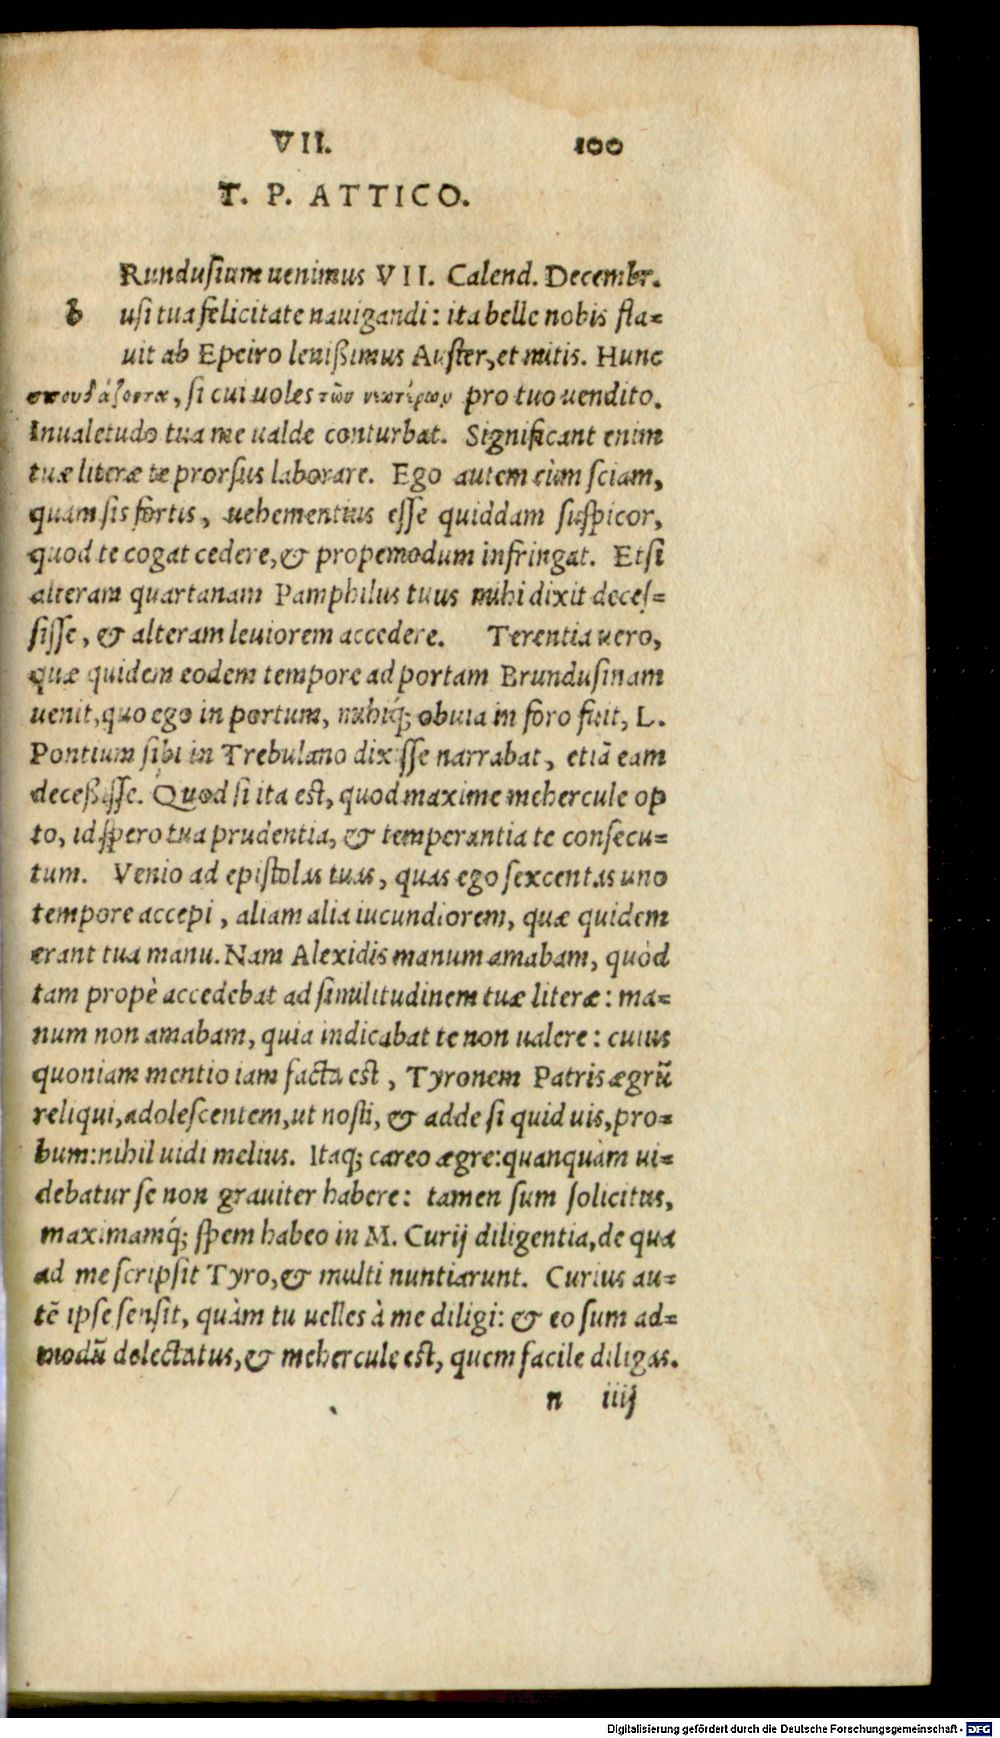 VII. 100
T. P. ATTICO.
Rundusium uenimus VII. Calend. Decembr.
b usi tua felicitate nauigandi: ita belle nobis fla=
uit ab Epeiro lenißimus Auster, et mitis. Hunc
σπουδάζοντα, si cui uoles τῶν νεωτέρων pro tuo uendito.
Inualetudo tua me ualde conturbat. Significant enim
tuæ literæ te prorsus laborare. Ego autem cùm sciam,
quam sis fortis, uehementius esse quiddam suspicor,
quod te cogat cedere, & propemodum infringat. Etsi
alteram quartanam Pamphilus tuus mihi dixit deces=
sisse, & alteram leuiorem accedere. Terentia uero,
quæ quidem eodem tempore ad portam Brundusinam
uenit, quo ego in portum, mihiq́; obuia in foro fuit, L.
Pontium sibi in Trebulano dixisse narrabat, etiā eam
deceßisse. Quod si ita est, quod maxime mehercule op
to, id spero tua prudentia, & temperantia te consecu=
tum. Venio ad epistolas tuas, quas ego sexcentas uno
tempore accepi, aliam alia iucundiorem, quæ quidem
erant tua manu. Nam Alexidis manum amabam, quòd
tam propè accedebat ad similitudinem tuæ literæ: ma=
num non amabam, quia indicabat te non ualere: cuius
quoniam mentio iam facta est, Tyronem Patris ægrū
reliqui, adolescentem, ut nosti, & adde si quid uis, pro=
bum: nihil uidi melius. Itaq; careo ægre: quanquàm ui=
debatur se non grauiter habere: tamen sum solicitus,
maximamq́; spem habeo in M. Curij diligentia, de qua
ad me scripsit Tyro, & multi nuntiarunt. Curius au=
tē ipse sensit, quàm tu uelles à me diligi: & eo sum ad=
modū delectatus, & mehercule est, quem facile diligas.
n iiij
Digitalisierung gefördert durch die Deutsche Forschungsgemeinschaft - DFG